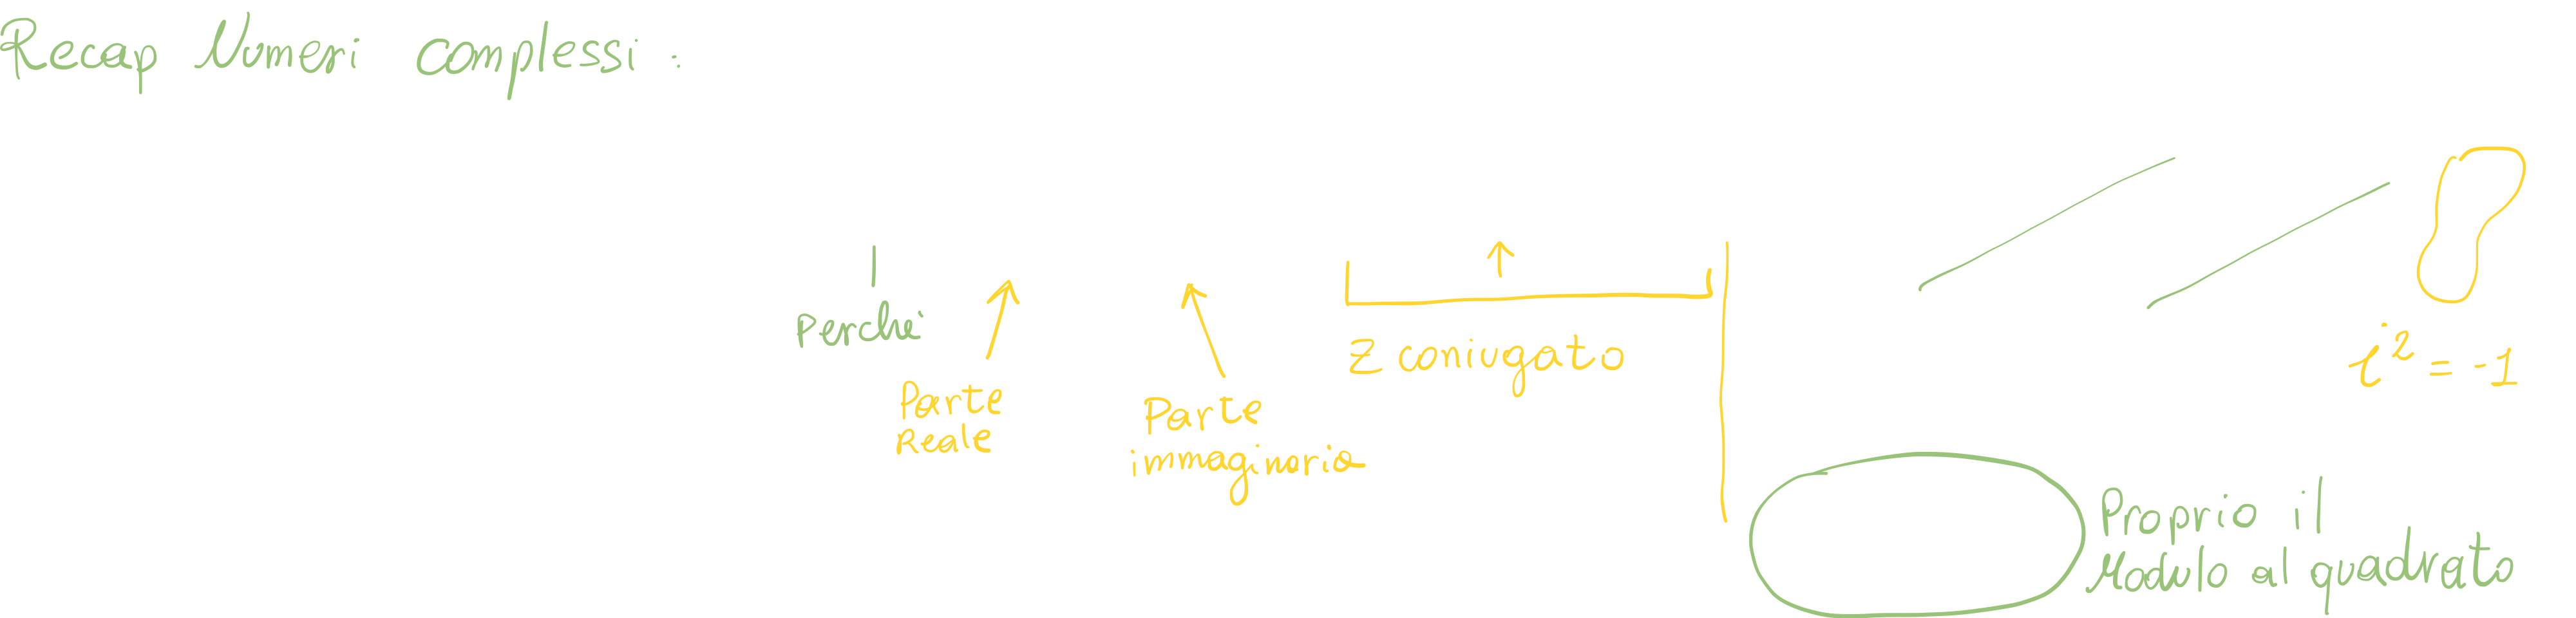 Recap Numeri complessi :
Perché
Parte
Reale
Parte
immaginaria
Z coniugato
i² = -1
Proprio il
Modulo al quadrato